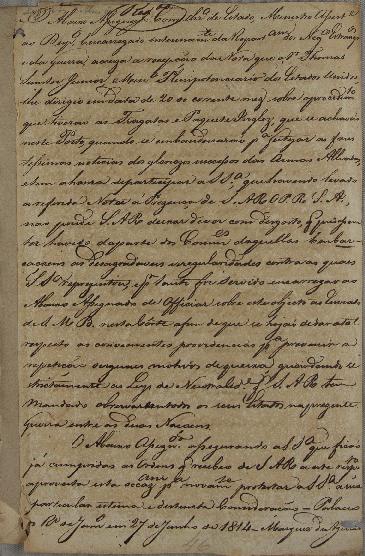 O Abaixo Assignado, Cons.º de Estado, Ministro Assist.e
ao Desp.º, encarregado interinam.te da Repart.am dos Neg.os Estrang.os
e da Guerra, accuza a recepção da Nota que o Sr. Thomas
Sumter Junior, e Min.o Plenipotenciario dos Estados Unidos
lhe dirigio em data de 20 do corrente mez, sobre o procedim.to
que tiverão as Fragatas e Paquete Inglez, que se achavão
neste Porto, quando se embandeirarão p.a festejar as faus
tissimas noticias dos gloriozos successos das Armas Alliadas,
e tem a honra de participar a S.S.a, que havendo levado
a referida Nota á Prezença de S. A. R. O P. R. S. A.,
não pode S. A. R. deixar de ver com disgosto, q
ter havido da parte dos Comm.es daquellas Embar
cacoens as desagradaveis irregularidades contra as quaes
S.S.a reprezentou, e p.r tanto foi servido encarregar ao
Abaixo Assignado de Officiar sobre este objecto ao Enviado
de S. M. B. nesta Côrte afim de que se hajão de dar a tal
respeito as convenientes providencias p.a prevenir a
repetição de quaes motivos de queixa, guardando se
strictamente as Leys da Neutralid.e q S. A. R. tem
mandado observar em todos os seus Estados na prezente
Guerra entre as duas Nacoens.
O Abaixo Assign.do assegurando a S.S.a que ficão
já cumpridas as Ordens q recebeo de S. A. R. a este resp.o
aproveita esta occaz.am p.a novam.te protestar a S.S.a a sua
particular estima e distincta Consideração = Palacio
do R.o de Jan.ro em 27 de Junho de 1814 = Marquez de Aguiar